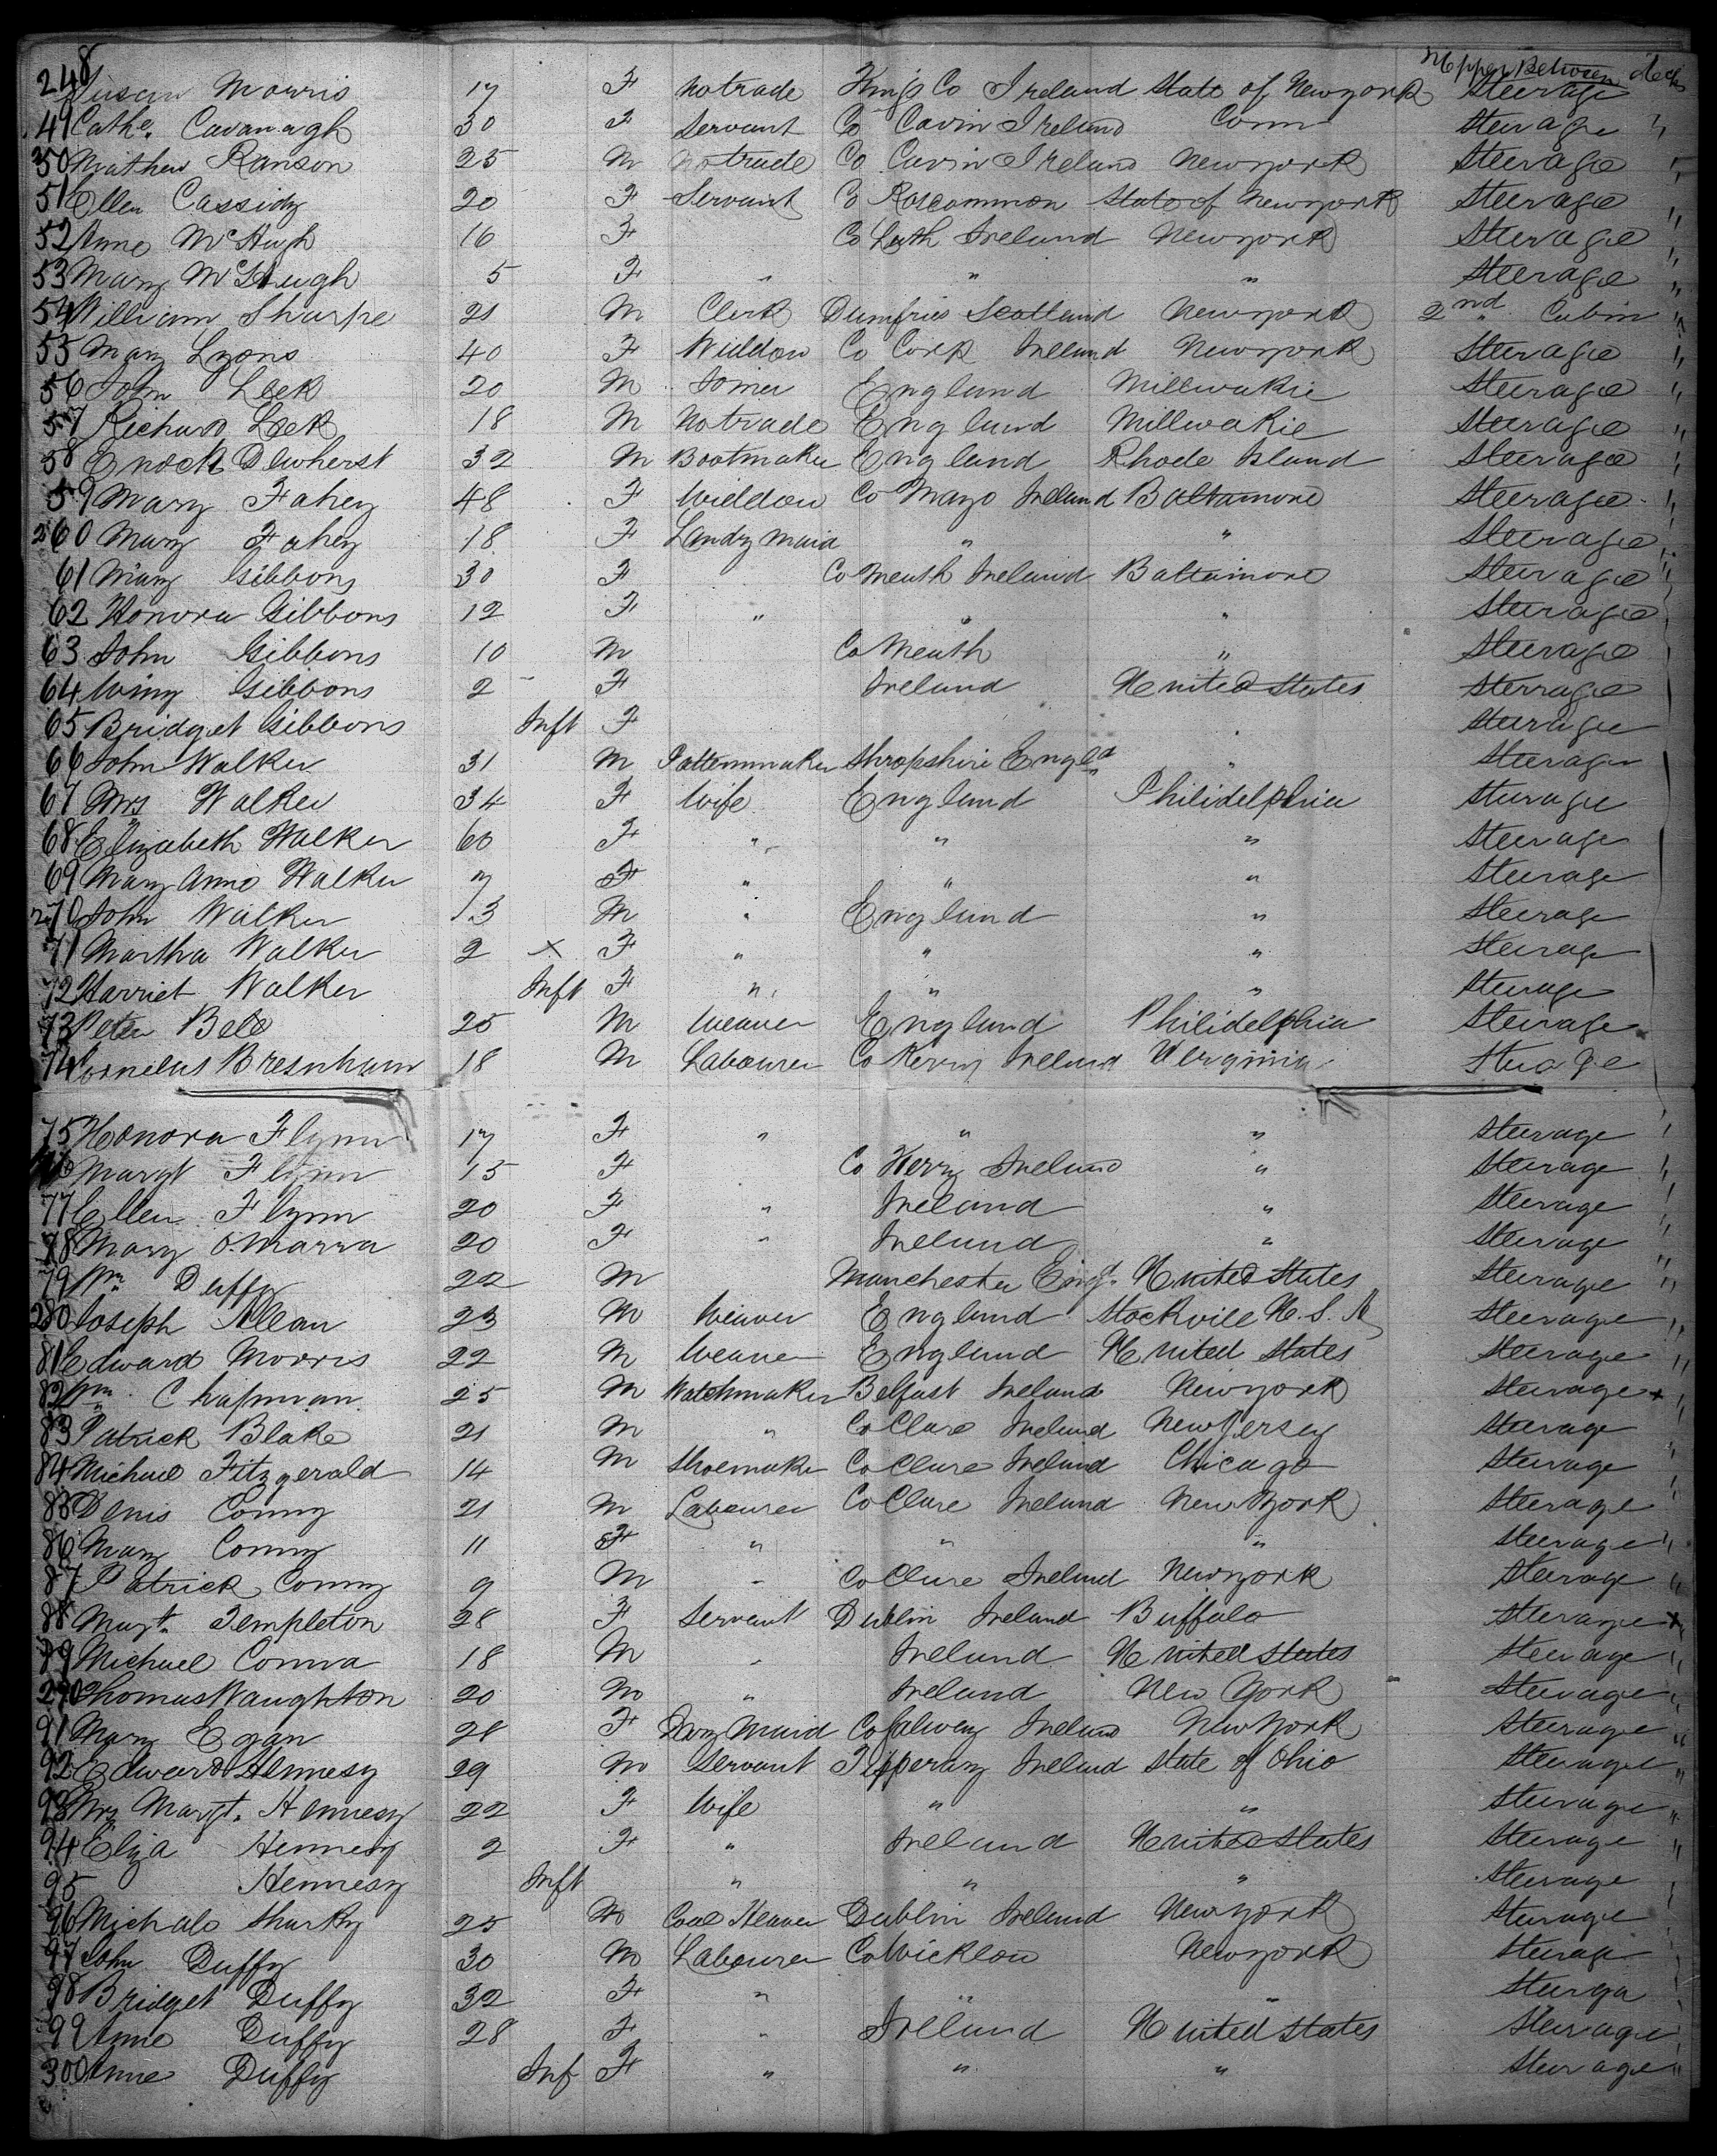 Upper Between decks
248 Susan Morris 17 F no trade Kings Co Ireland State of Newyork Steerage
49 Cathe. Cavanagh 30 F Servant Co Cavin Ireland Conn Steerage "
250 Mathew Ranson 25 M no trade Co Cavin Ireland Newyork Steerage "
51 Ellen Cassidy 20 F Servant Co Roscommon State of Newyork Steerage "
52 Anne McHugh 16 F Co Luth Ireland Newyork Steerage "
53 Mary McHugh 5 F " " " Steerage "
54 William Sharpe 21 M Clerk Dumfries Scotland Newyork 2nd Cabin "
55 Mary Lyons 40 F Widdow Co Cork Ireland Newyork Steerage "
56 John Leek 20 M Joiner England Millwakie Steerage "
57 Richard Leek 18 M no trade England Millwakie Steerage "
58 Enoch Dewherst 32 M Bootmaker England Rhode Island Steerage "
59 Mary Fahey 48 F Widdow Co Mayo Ireland Baltamore Steerage "
260 Mary Fahey 18 F Landy maid " " Steerage "
61 Mary Gibbons 30 F Co Meath Ireland Baltaimore Steerage "
62 Honora Gibbons 12 F " " " Steerage
63 John Gibbons 10 M Co Meath " Steerage
64 Winy Gibbons 2 F Ireland United States Sterrage
65 Bridget Gibbons Inft F " Steerage
66 John Walker 31 M Patternmaker Shropshire Engld " Steerage
67 Mrs Walker 34 F Wife England Philidelphia Steerage
68 Elizabeth Walker 60 F " " " Steerage
69 Mary Anne Walker 7 F " " " Steerage
270 John Walker 13 M " England " Steerage
71 Martha Walker 2 x F " " " Steerage
72 Harriet Walker Inft F " " " Steerage
73 Peter Bell 25 M Weaver England Philidelphia Steerage
74 Cornelus Bresnham 18 M Labourer Co Kerry Ireland Verginia Steerage
75 Honora Flynn 17 F " " " Steerage "
76 Margt Flynn 15 F Co Kerry Ireland " Steerage "
77 Ellen Flynn 20 F " Ireland " Steerage "
78 Mary O.Marra 20 F " Ireland " Steerage "
79 Wm Duffy 22 M Manchester Engd. United States Steerage "
280 Joseph Allean 23 M Weaver England Stockville U.S.A Steerage "
81 Edward Morris 22 M Weaver England United States Steerage "
82 Wm Chapman 25 M Watchmaker Belfast Ireland Newyork Steerage x "
83 Patrick Blake 21 M " Co Clare Ireland New Jersey Steerage "
84 Michael Fitzgerald 14 M Shoemaker Co Clare Ireland Chicago Steerage "
85 Denis Conny 21 M Labourer Co Clare Ireland New York Steerage "
86 Mary Conny 11 F " " " Steerage "
87 Patrick Conny 9 M " Co Clare Ireland Newyork Steerage "
88 Margt. Templeton 28 F Servant Dublin Ireland Buffalo Steerage x
89 Michael Conwa 18 M " Ireland United States Steerage "
290 Thomas Naughton 20 M " Ireland New York Steerage "
91 Mary Egan 28 F Dary Maid Co Galway Ireland New York Steerage "
92 Edward Hennesy 29 M Servant Tipperary Ireland State of Ohio Steerage "
93 Mrs Margt. Hennesy 22 F Wife " " Steerage "
94 Eliza Hennesy 2 F " Ireland United States Steerage "
95 Hennesy Inft " " " Steerage "
96 Michale Sharky 25 M Coal Heaver Dublin Ireland Newyork Steerage "
97 John Duffy 30 M Labourer Co Wicklow Newyork Steerage
98 Bridget Duffy 32 F " " " Steerga
99 Anne Duffy 28 F " Ireland United States Steerage
300 Anne Duffy Inf F " " " Steerage "